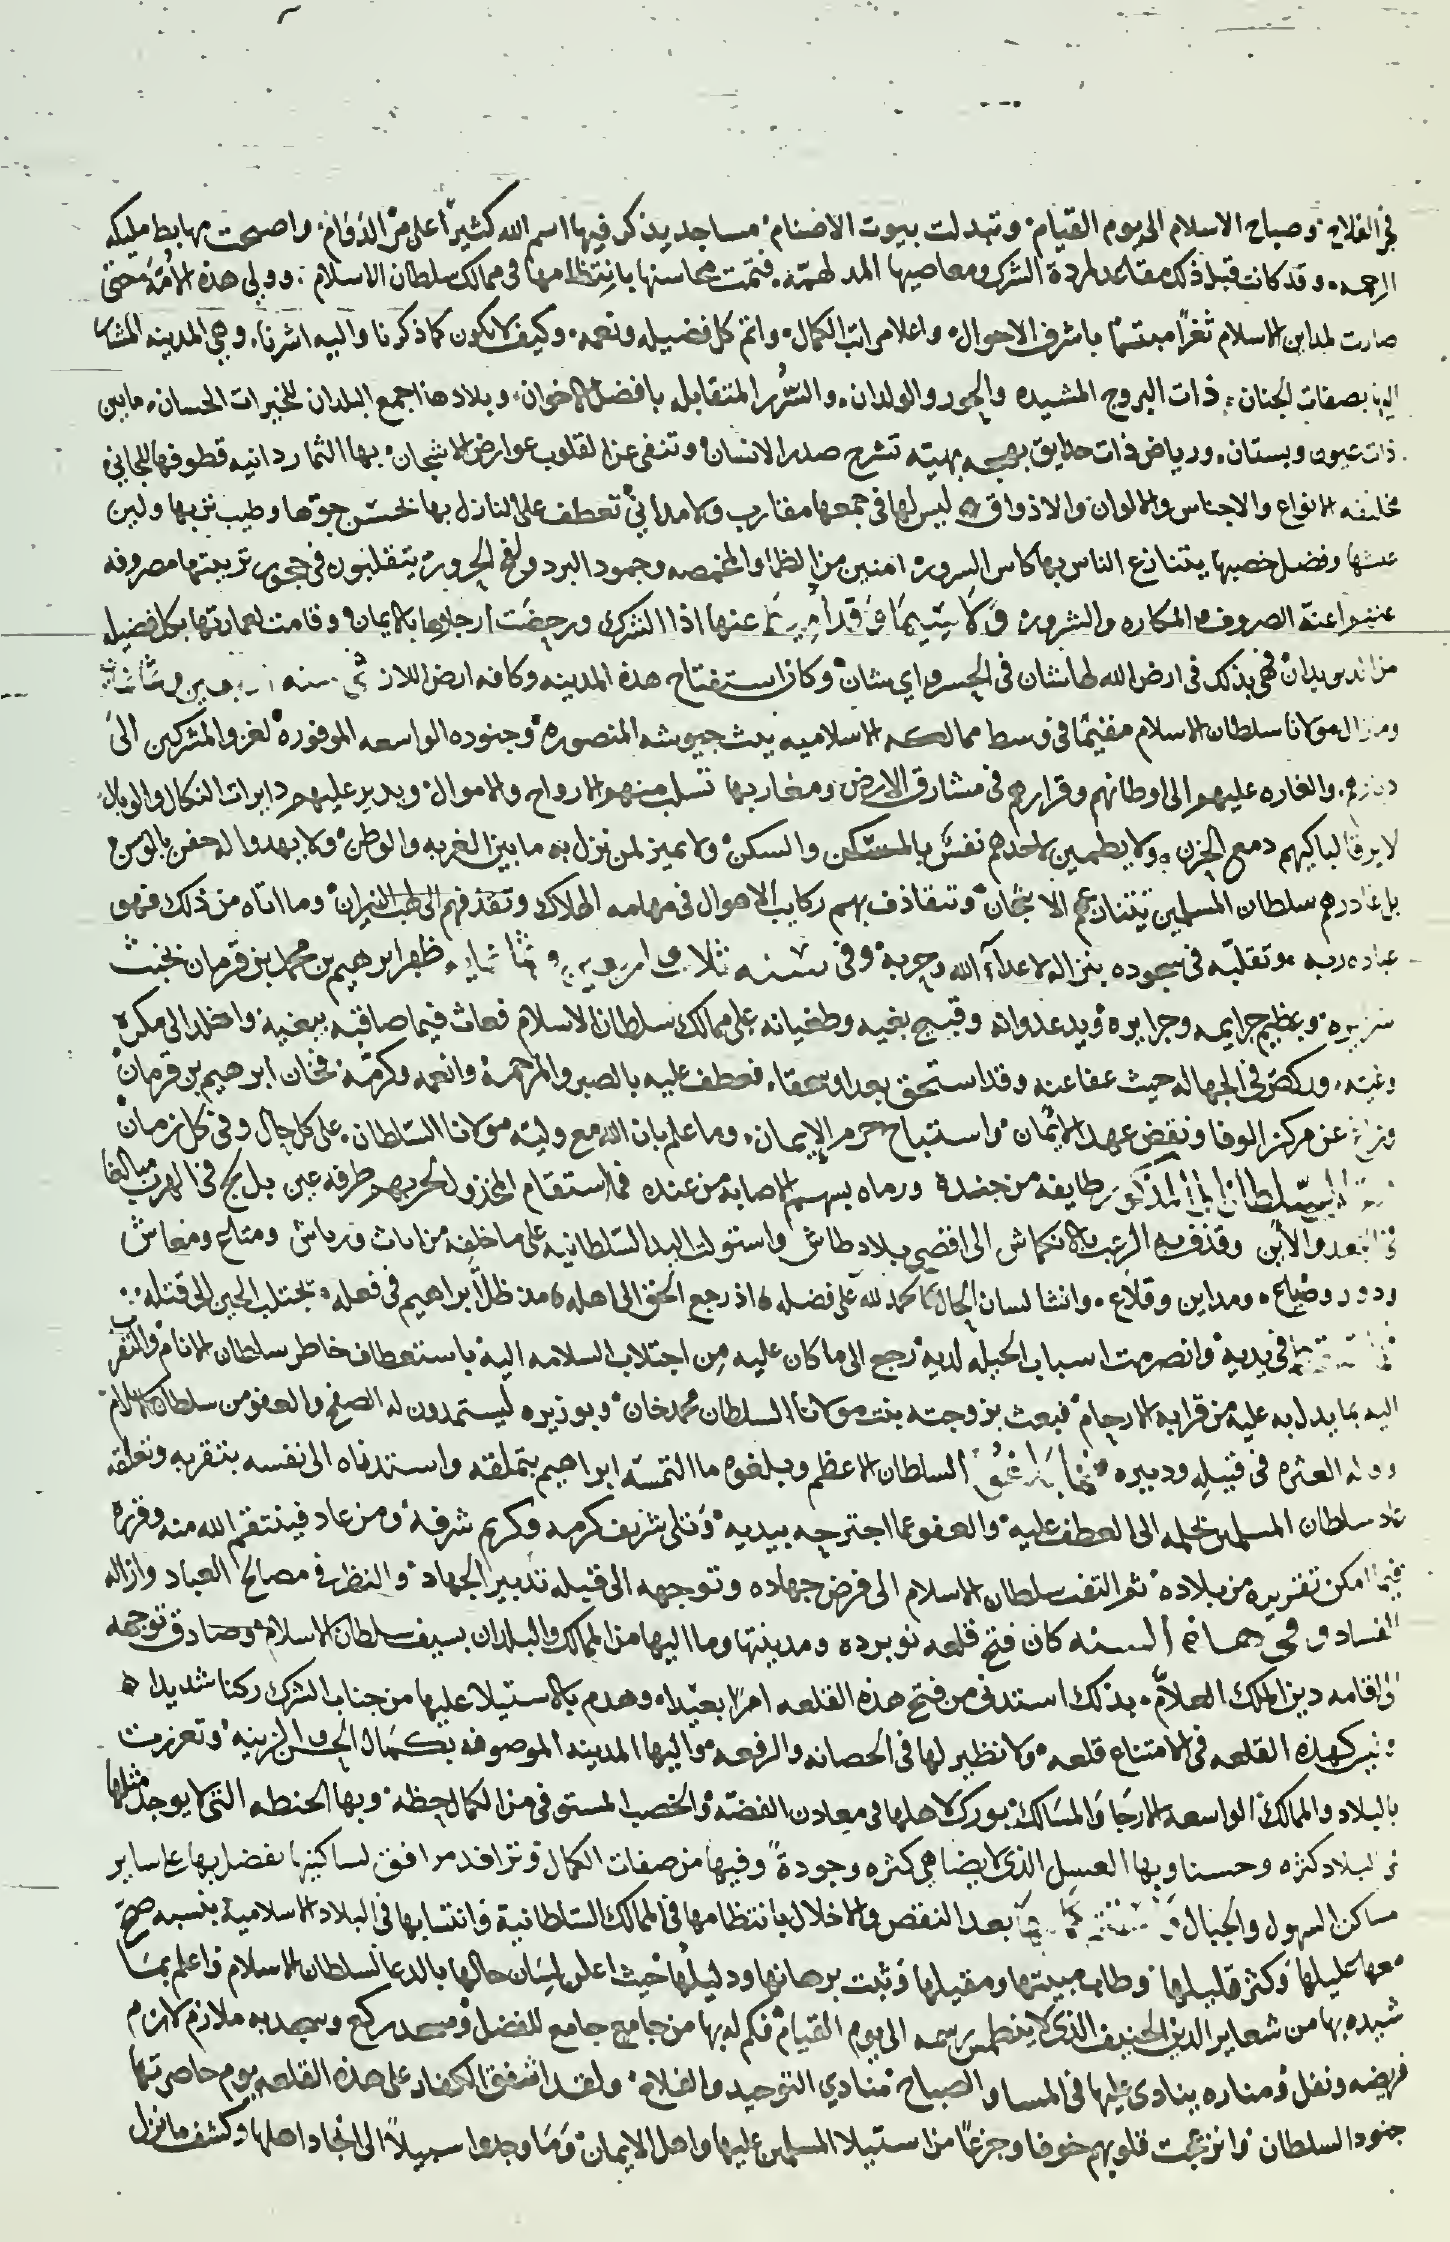 فجر الفلاح وصباح الاسلام الى يوم القيام وتبدلت بيوت الاصنام مساجد يذكر فيها اسم الله كثيرا على مر الدوام واصبحت مهابط مليكه
الرحمه وقد كانت قبل ذلك مقاعد لمردة الشرك ومعاصيها المدلهمه فتمت محاسنها بانتظامها فى ممالك سلطان الاسلام وولى هذه الامة حتى
صارت لمداين الاسلام ثغرا مبتسما باشرف الاحوال واعلا مراتب الكمال واتم كل فضيله ونعمه وكيف لا تكون كما ذكرنا واليه اشرنا وهى المدينه المشار
اليها بصفات الجنان ذات البروج المشيده والحور والولدان والسرر المتقابله بافضل الاخوان وبلادها اجمع البلدان للخيرات الحسان مابين
ذات عيون وبستان ورياض ذات حدايق بهجه بهيته تشرح صدر الانسان وتنفى عن القلوب عوارض الاشجان بها الثمار دانيه قطوفها للجانى
مختلفه الانواع والاجناس والالوان والاذواق ليس لها فى جمعها مقارب ولا مدانى تعطف على النازل بها لحسن جوها وطيب تربها ولين
عيشها وفضل خصبها يتنازع الناس بها كاس السرور امنين من الظما والمخمصه وجمود البرد ولفح الحرور يتقلبون فى حجور تربيتها مصروفه
عنهم اعنة الصروف والمكاره والشرور ولا سيما وقد اميط عنها اذا الشرك ورحضت ارجاوها بالايمان وقامت لعمارتها بكل فضيله
من الله يدان فهى بذلك فى ارض الله لها شان فى الحسن واى شان وكان استفتاح هذه المدينه وكافه ارض اللاز فى سنه
وما زال مولانا سلطان الاسلام مقيما فى وسط ممالكه الاسلاميه يبث جيوشه المنصوره وجنوده الواسعه الموفوره لغزو المشركين الى
ديارهم والغاره عليهم الى اوطانهم وقرارهم فى مشارق الارض ومغاربها تسلب منهم الارواح والاموال ويدير عليهم دايرات النكال والوبال
لا يرقا لباكيهم دمع الحزن ولا يطمين لاحدهم نفس بالمسكن والسكن ولا يميز لمن نزل به ما بين الغربه والوطن ولا يهدوا له جفن بالوسن
بل غادرهم سلطان المسلمين تنتابهم الاشجان وتتقاذف بهم ركايب الاهوال فى مهامه الهلاك وتقذفهم الى لهب النيران وما اتاه من ذلك فهو
عباده ربه وتقلبه فى سجوده بنزاله لاعداء الله وحربه وفى سنه ثلاث واربعين وثمانمايه ظهر ابرهيم بن محمد بن قرمان بخبث
سريره وعظيم جرايمه وجرايره ويد عدوانه وقبيح بغيه وطغيانه على ممالك سلطان الاسلام فعاث فيما صاقبه ببغيه واخلد الى مكره
وغيه وركض فى الجهاله حيث عفا عنه وقد استحق بعدا وسحقا فعطف عليه بالصبر والمرحمه وانعمه وكرمه فخان ابرهيم بن قرمان
وزاغ عن مركز الوفا ونقض عهد الايمان واستباح حرم الايمان وما علم بان الله مع وليته مولانا السلطان على كل حال وفى كل زمان
السلطان الى المذكور طايفه من جنده ورماه بسهم الاصابه من عنده فما استقام المخزول لحربهم طرفه عين بل لج فى الهرب مبالغا
فى البعد والاين وقذف به الرعب والانكماش الى اقصى بلاد طاش واستولت اليد السلطانيه على ما خلفه من اثاث ورياش ومتاع ومعاش
ودور وضياع ومداين وقلاع وانشا لسان الحال ها حمد لله على فضله اذ رجع الحق الى اهله مذ ظل ابراهيم فى فعله تجتلب الحين الى قتله
فى يديه وانصرمت اسباب الحيله لديه رجع الى ما كان عليه من اجتلاب السلامه اليه باستعطاف خاطر سلطان الانام والتقرب
اليه بما يدل به عليه من قرابه الارحام فبعث بزوجته بنت مولانا السلطان محمد خان وبوزيره ليستمدون له الصفح والعفو من سلطان الاسلام
العثره فى قبيله ودبيره السلطان الاعظم وبلغوه ما التمسه ابراهيم بتملقه واستدناه الى نفسه بتقربه وتعلقه
عاد سلطان المسلمين بحلمه الى العطف عليه والعفو عما اجترحه بيديه وتلى شريف كرمه وكريم شرفه ومن عاد فينتقم الله منه وقرره
فيما امكن تقريره من بلاده ثم التفت سلطان الاسلام الى فرض جهاده وتوجهه الى قبله تدبير الجهاد والنظر فى مصالح العباد وازاله
الفساد وفى هذه السنه كان فتح قلعه نوبرده ومدينتها وما اليها من الممالك والبلدان بسيف سلطان الاسلام وصادق توجهه
الى اقامه دين الملك العلام بذلك استدنى من فتح هذه القلعه امرا بعيدا وهدم بالاستيلا عليها من جناب الشرك ركنا شديدا
وليس كهذه القلعه فى الامتناع قلعه ولا نظير لها فى الحصانه والرفعه واليها المدينه الموصوفه بكمال الحسن والزينه وتعززت
بالبلاد والممالك الواسعه الارجا والمسالك بورك لاهلها فى معادن الفضه والخصب المستوفى من الكمال حظه وبها الحنطه التى لا يوجد مثلها
فى البلاد كثره وحسنا وبها العسل الذى لا يضاهى كثره وجودة وفيها من صفات الكمال وترافد مرافق لساكنيها تفضل بها على ساير
مساكن السهول والجبال بعد النقص والاخلال بانتظامها فى الممالك السلطانية وانتسابها فى البلاد الاسلامية بنسبه صح
معها عليلها وكثر قليلها وطاب مبيتها ومقيلها وثبت برهانها ودليلها حيث اعلن لسان حالها بالدعا لسلطان الاسلام واعلم بما
شيده بها من شعاير الدين الحنيف الذى لا ينطمس رسمه الى يوم القيام فكم له بها من جامع جامع للفضل ومسجد يركع ويسجد به ملازم لازم
فريضه ونفل ومناره ينادى عليها فى المسا والصباح منادي التوحيد والفلاح ولقد اشفق الكفار على هذه القلعه يوم حاصرتها
جنود السلطان وانزعجت قلوبهم خوفا وجزعا من استيلا المسلمين عليها واهل الايمان وما وجدوا سبيلا الى انجاد اهلها وكشف ما نزل